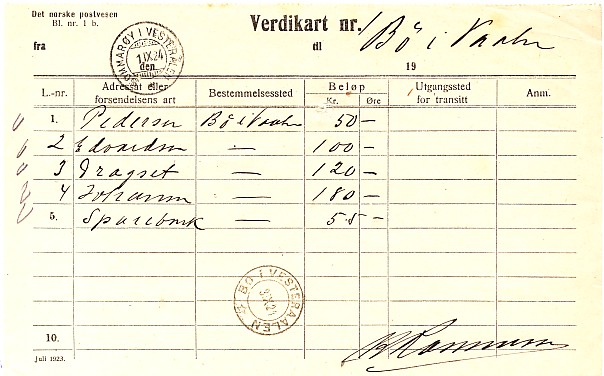 Det norske postvesen
Bl. nr. 1 b.
Verdikart nr. 1
fra
til Bö i Vaalen
19
OMMARØY I VESTERAALEN
1 IX 24
den
L.-nr. Adressat eller forsendelsens art Bestemmelsessted Beløp Kr. Øre Utgangssted for transitt Anm.
1. Pedersen Bö i Vaalen 50 —
2 Edvardsen — 100 —
3 Dragset — 120 —
4 Johansen — 180 —
5. Sparebank — 55 —
BØ I VESTERAALEN
IX 24
10.
Juli 1923.